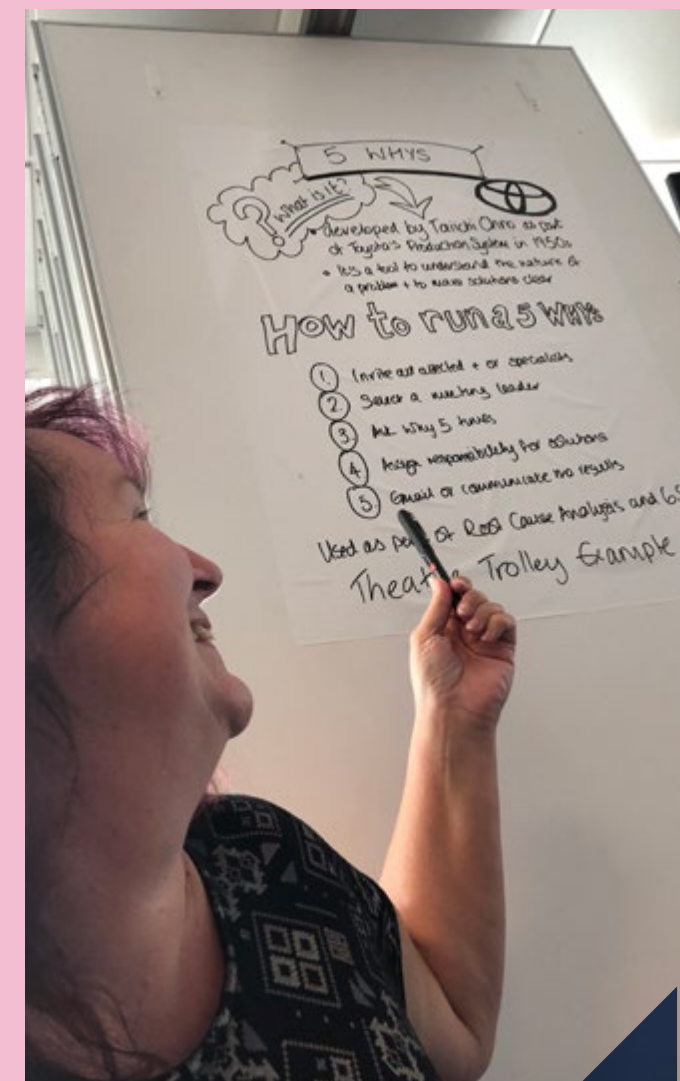 5 WHYS
What is it?
• developed by Taiichi Ohno as part
of Toyota's Production System in 1950s
• It's a tool to understand the nature of
a problem + to make solutions clear
How to run a 5 WHYS
1. Invite all affected + or specialists
2. Select a meeting leader
3 Ask Why 5 times
4 Assign responsibility for solutions
5 Email or communicate the results
Used as of Root Cause Analysis and
Trolley Example